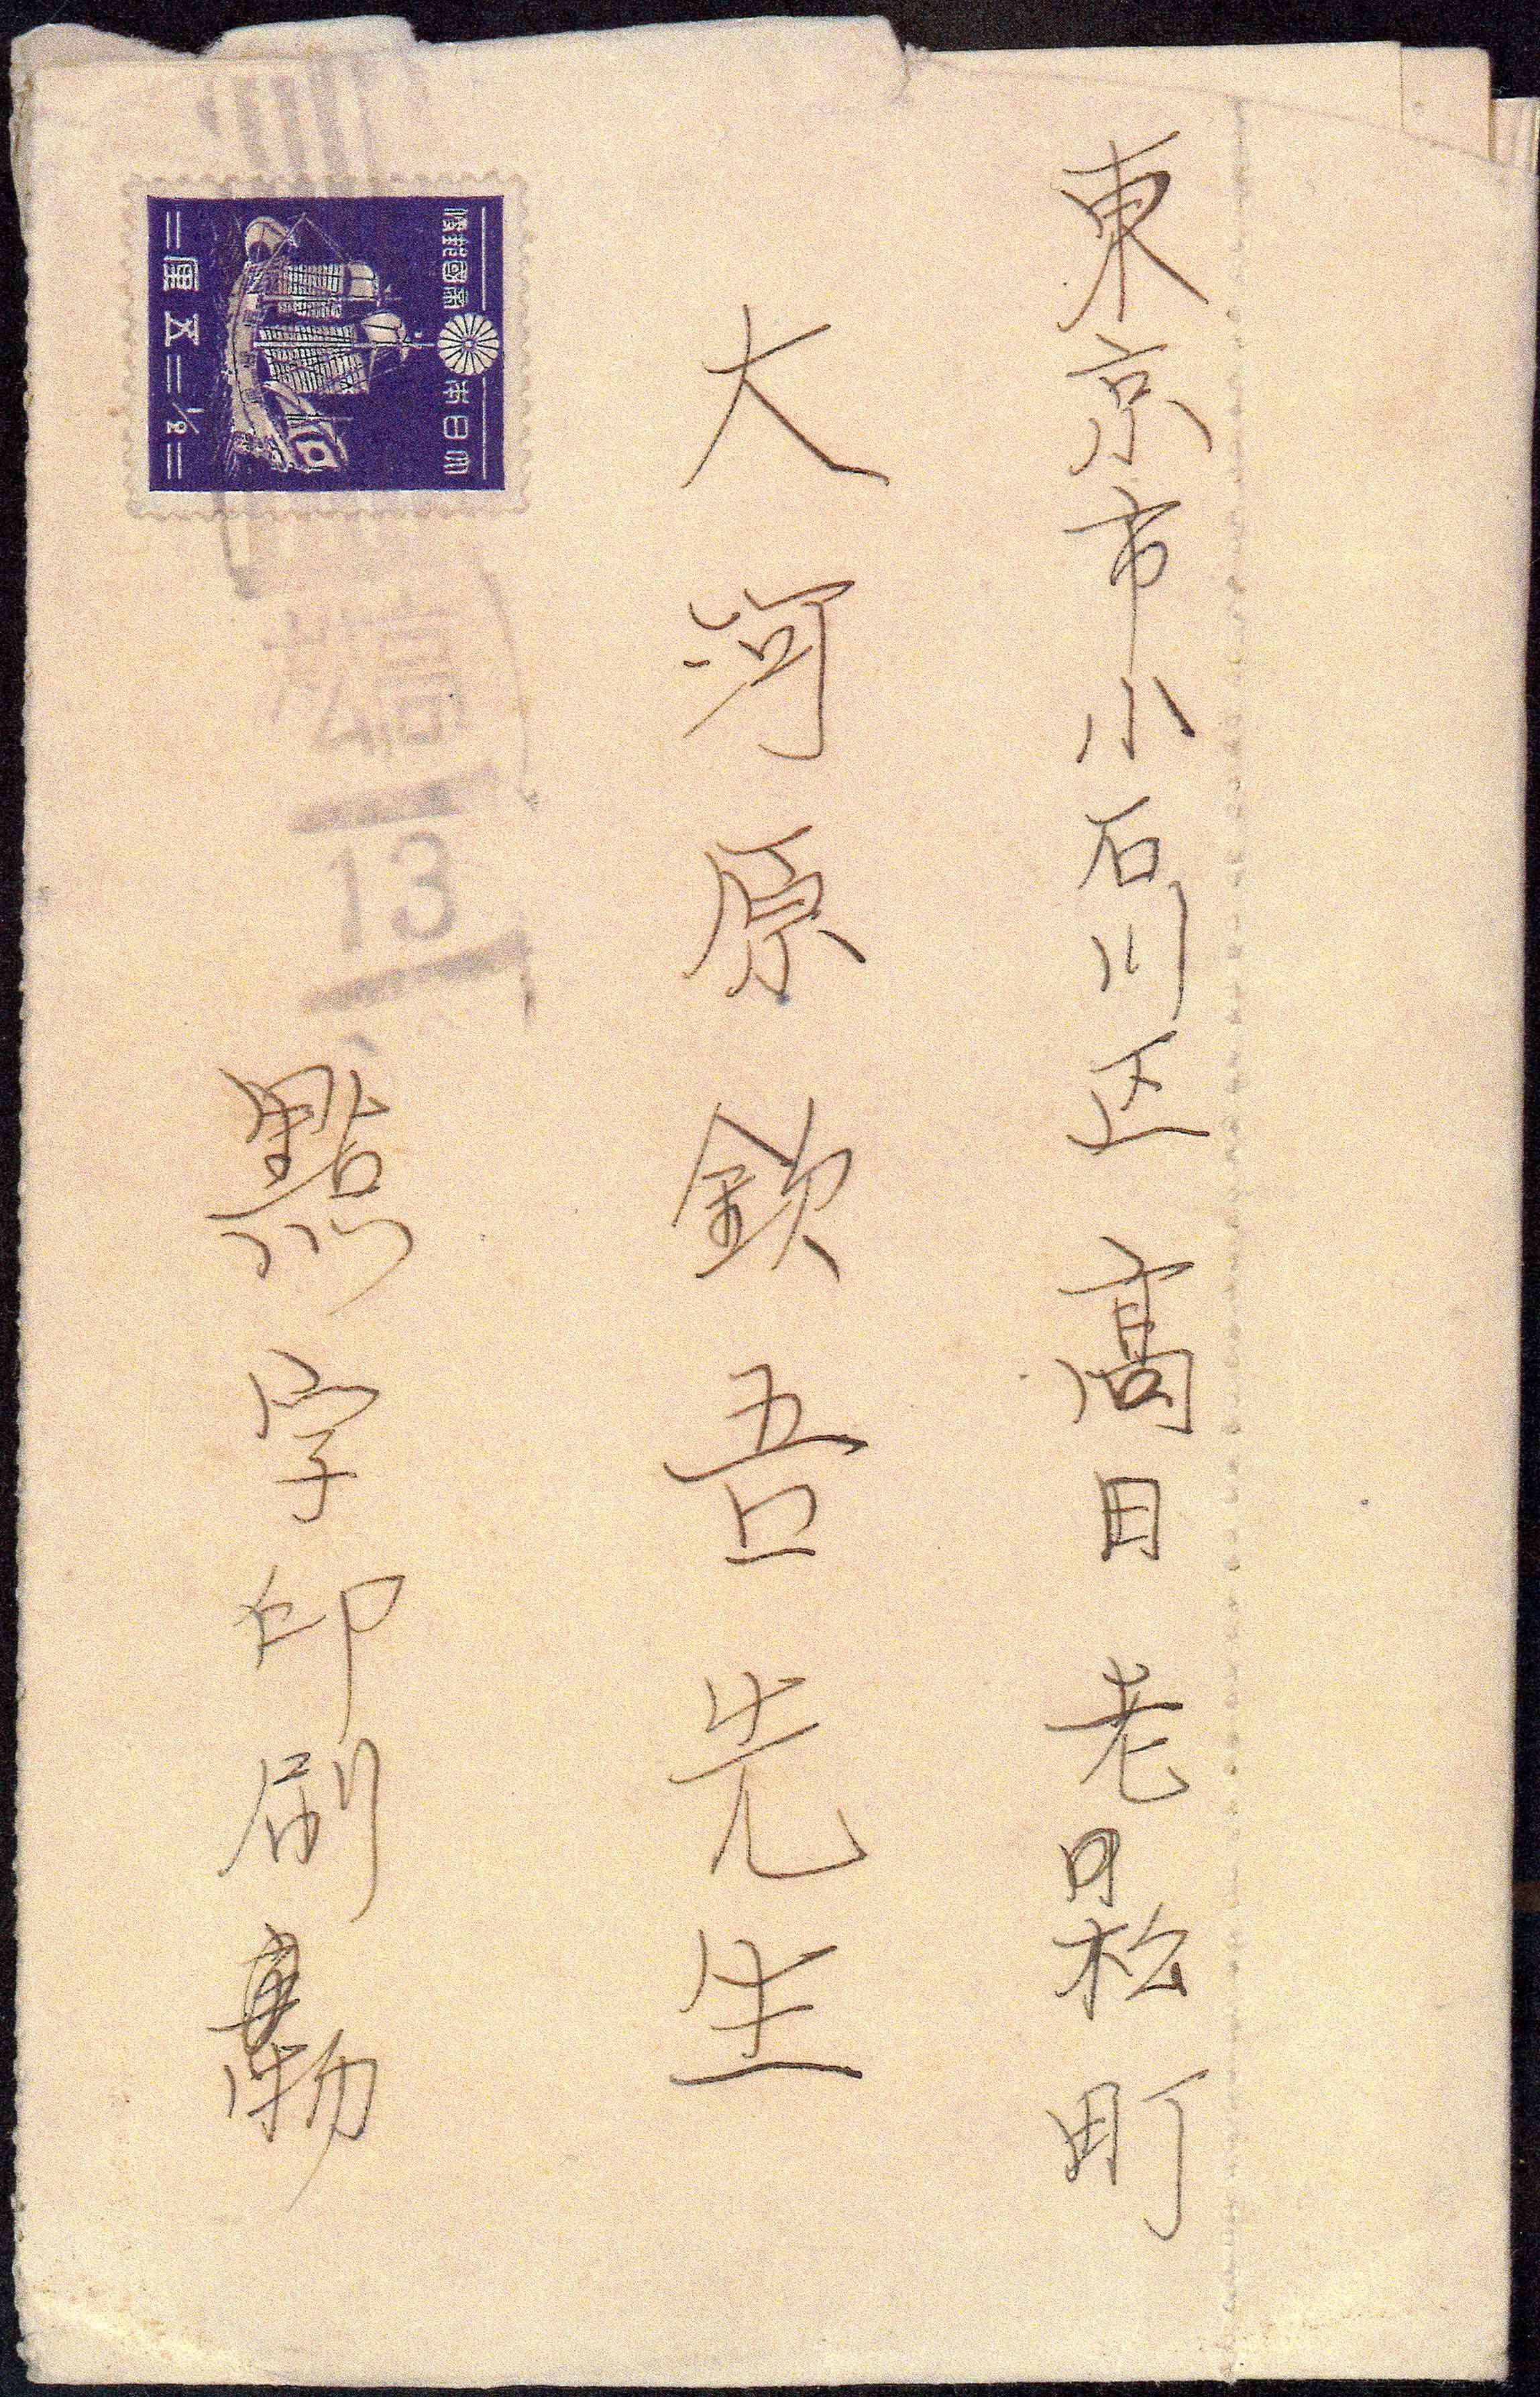 東京市小石川区高田老松町
大河原欽吾先生
點字印刷物
大日本帝國郵便
五厘
1/2
高松
13